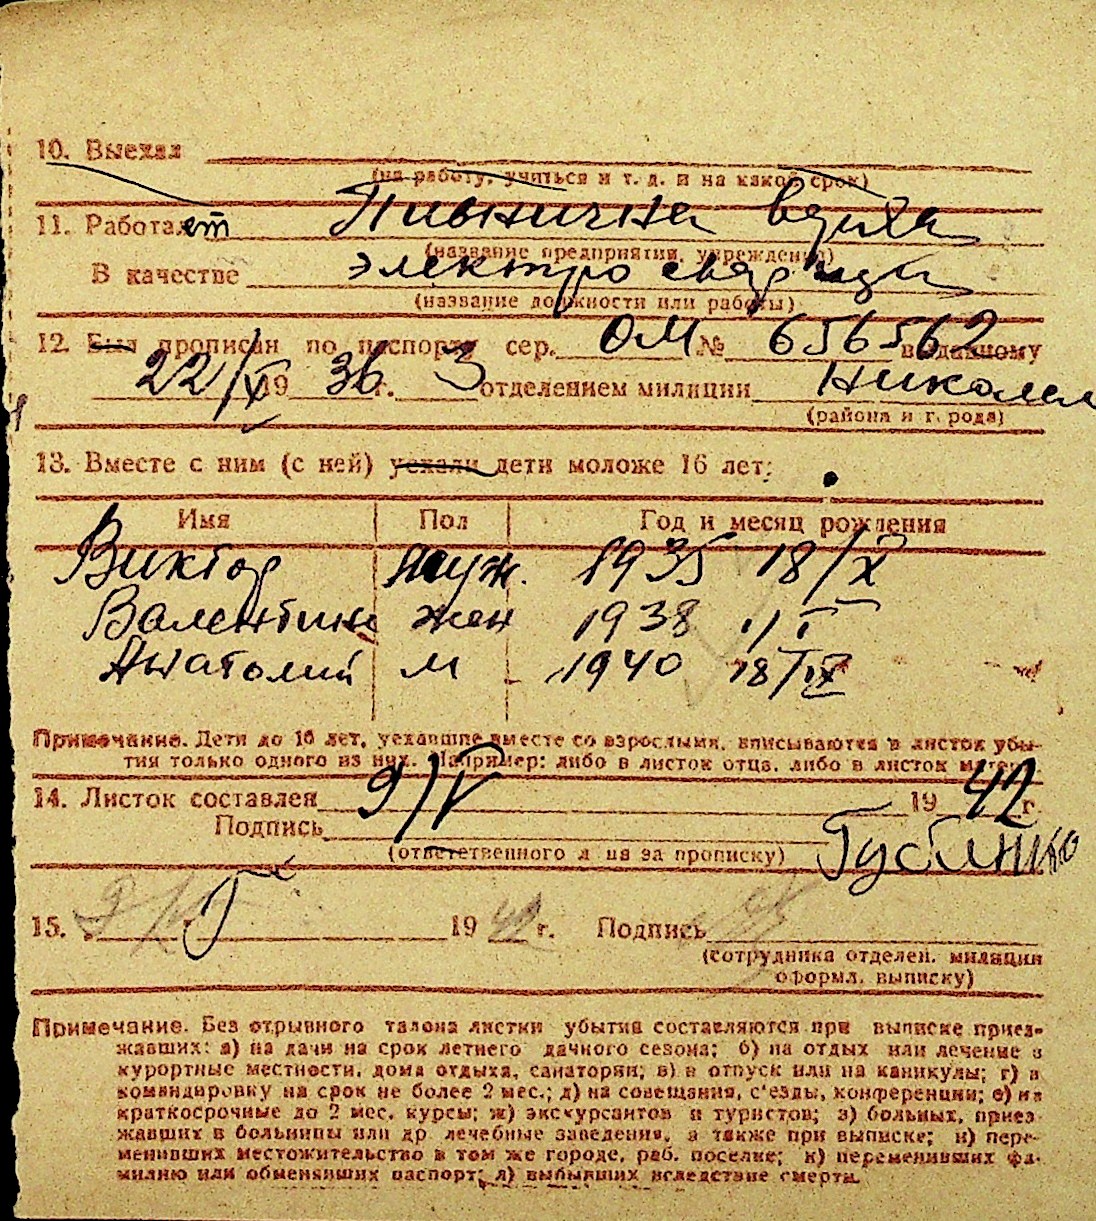 10. Выехал
(на работу, учиться и т. д. и на какой срок)
11. Работает Пивнична верфа
(название предприятия, учреждения)
В качестве электро сварщик
(название должности или работы)
12. Был прописан по паспорту сер. ОМ № 656562 выданному
22/X 1936 г. 3 отделением милиции Николаев
(района и г. рода)
13. Вместе с ним (с ней) уехали дети моложе 16 лет:
Имя Пол Год и месяц рождения
Виктор муж. 1935 18/X
Валентина жен 1938 1/I
Анатолий м 1940 18/IX
Примечание. Дети до 16 лет, уехавшие вместе со взрослыми, вписываются в листок убы-
тия только одного из них. Например: либо в листок отца, либо в листок матери.
14. Листок составлен 9/V 1942 г.
Подпись Губенко
(ответственного л ца за прописку)
15. 9 1942 г. Подпись
(сотрудника отделен. милиции
оформл. выписку)
Примечание. Без отрывного талона листки убытия составляются при выписке приез-
жавших: а) на дачи на срок летнего дачного сезона; б) на отдых или лечение в
курортные местности, дома отдыха, санатории; в) в отпуск или на каникулы; г) в
командировку на срок не более 2 мес.; д) на совещания, с'езды, конференции; е) на
краткосрочные до 2 мес. курсы; ж) экскурсантов и туристов; з) больных, приез-
жавших в больницы или др лечебные заведения, а также при выписке; и) пере-
менивших местожительство в том же городе, раб. поселке; к) переменивших фа-
милию или обменявших паспорт; л) выбывших вследствие смерти.